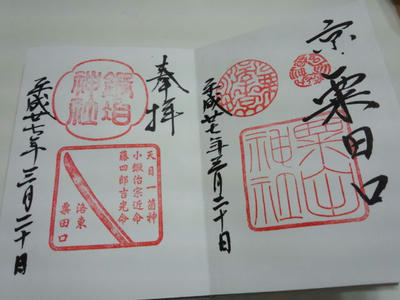 京 粟田口
粟田
神社
平成廿七年三月二十日
奉拝
鍛冶
神社
天目一箇神
小鍛冶宗近命
藤四郎吉光命
洛東
粟田口
平成廿七年三月二十日